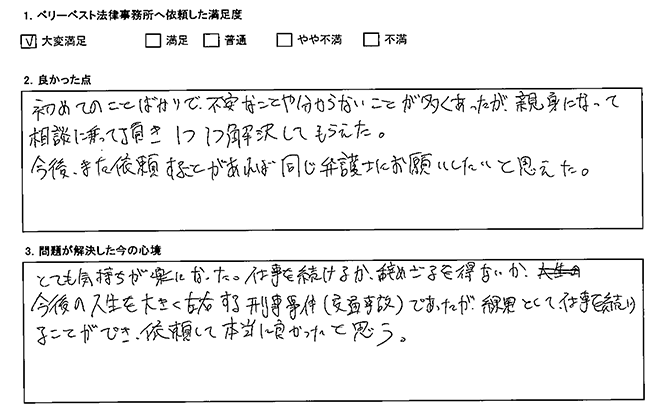 1. ベリーベスト法律事務所へ依頼した満足度
☑ 大変満足 □ 満足 □ 普通 □ やや不満 □ 不満
2. 良かった点
初めてのことばかりで、不安なことや分からないことが多くあったが、親身になって
相談に乗って頂き 1つ1つ解決してもらえた。
今後、また依頼することがあれば同じ弁護士にお願いしたいと思えた。
3. 問題が解決した今の心境
とても気持ちが楽になった。仕事を続けるか、辞めざるを得ないか、
今後の人生を大きく左右する刑事事件(交通事故)であったが、結果として、仕事を続け
ることができ、依頼して本当に良かったと思う。